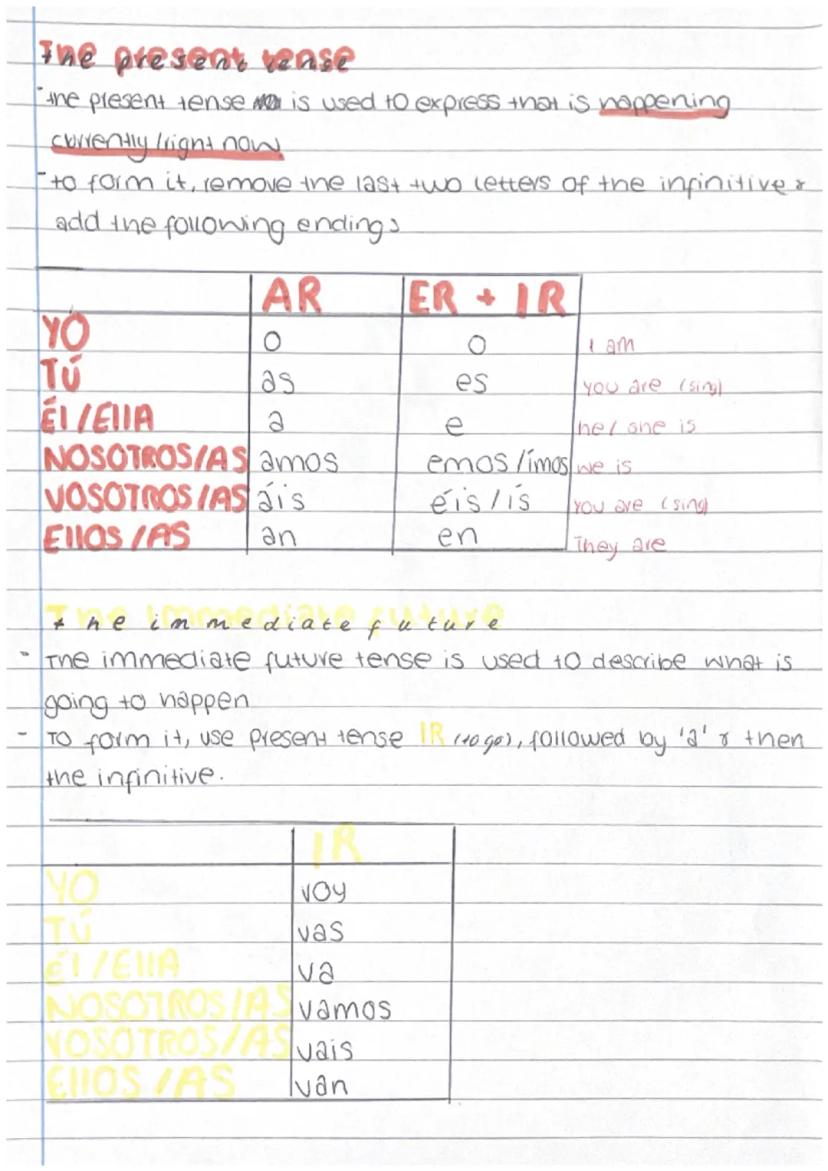 The present tense
- the present tense is used to express that is happening
currently/right now
- to form it, remove the last two letters of the infinitive &
add the following endings
AR ER + IR
YO o o I am
TÚ as es you are (sing)
ÉL/EllA a e he/she is
NOSOTROS/AS amos emos/imos we is
VOSOTROS/AS áis éis/ís you are (sing)
EllOS/AS an en They are
The immediate future
- The immediate future tense is used to describe what is
going to happen
- To form it, use present tense IR (to go), followed by 'a' & then
the infinitive.
IR
YO voy
TÚ vas
ÉL/EllA va
NOSOTROS/AS vamos
VOSOTROS/AS vais
EllOS/AS van